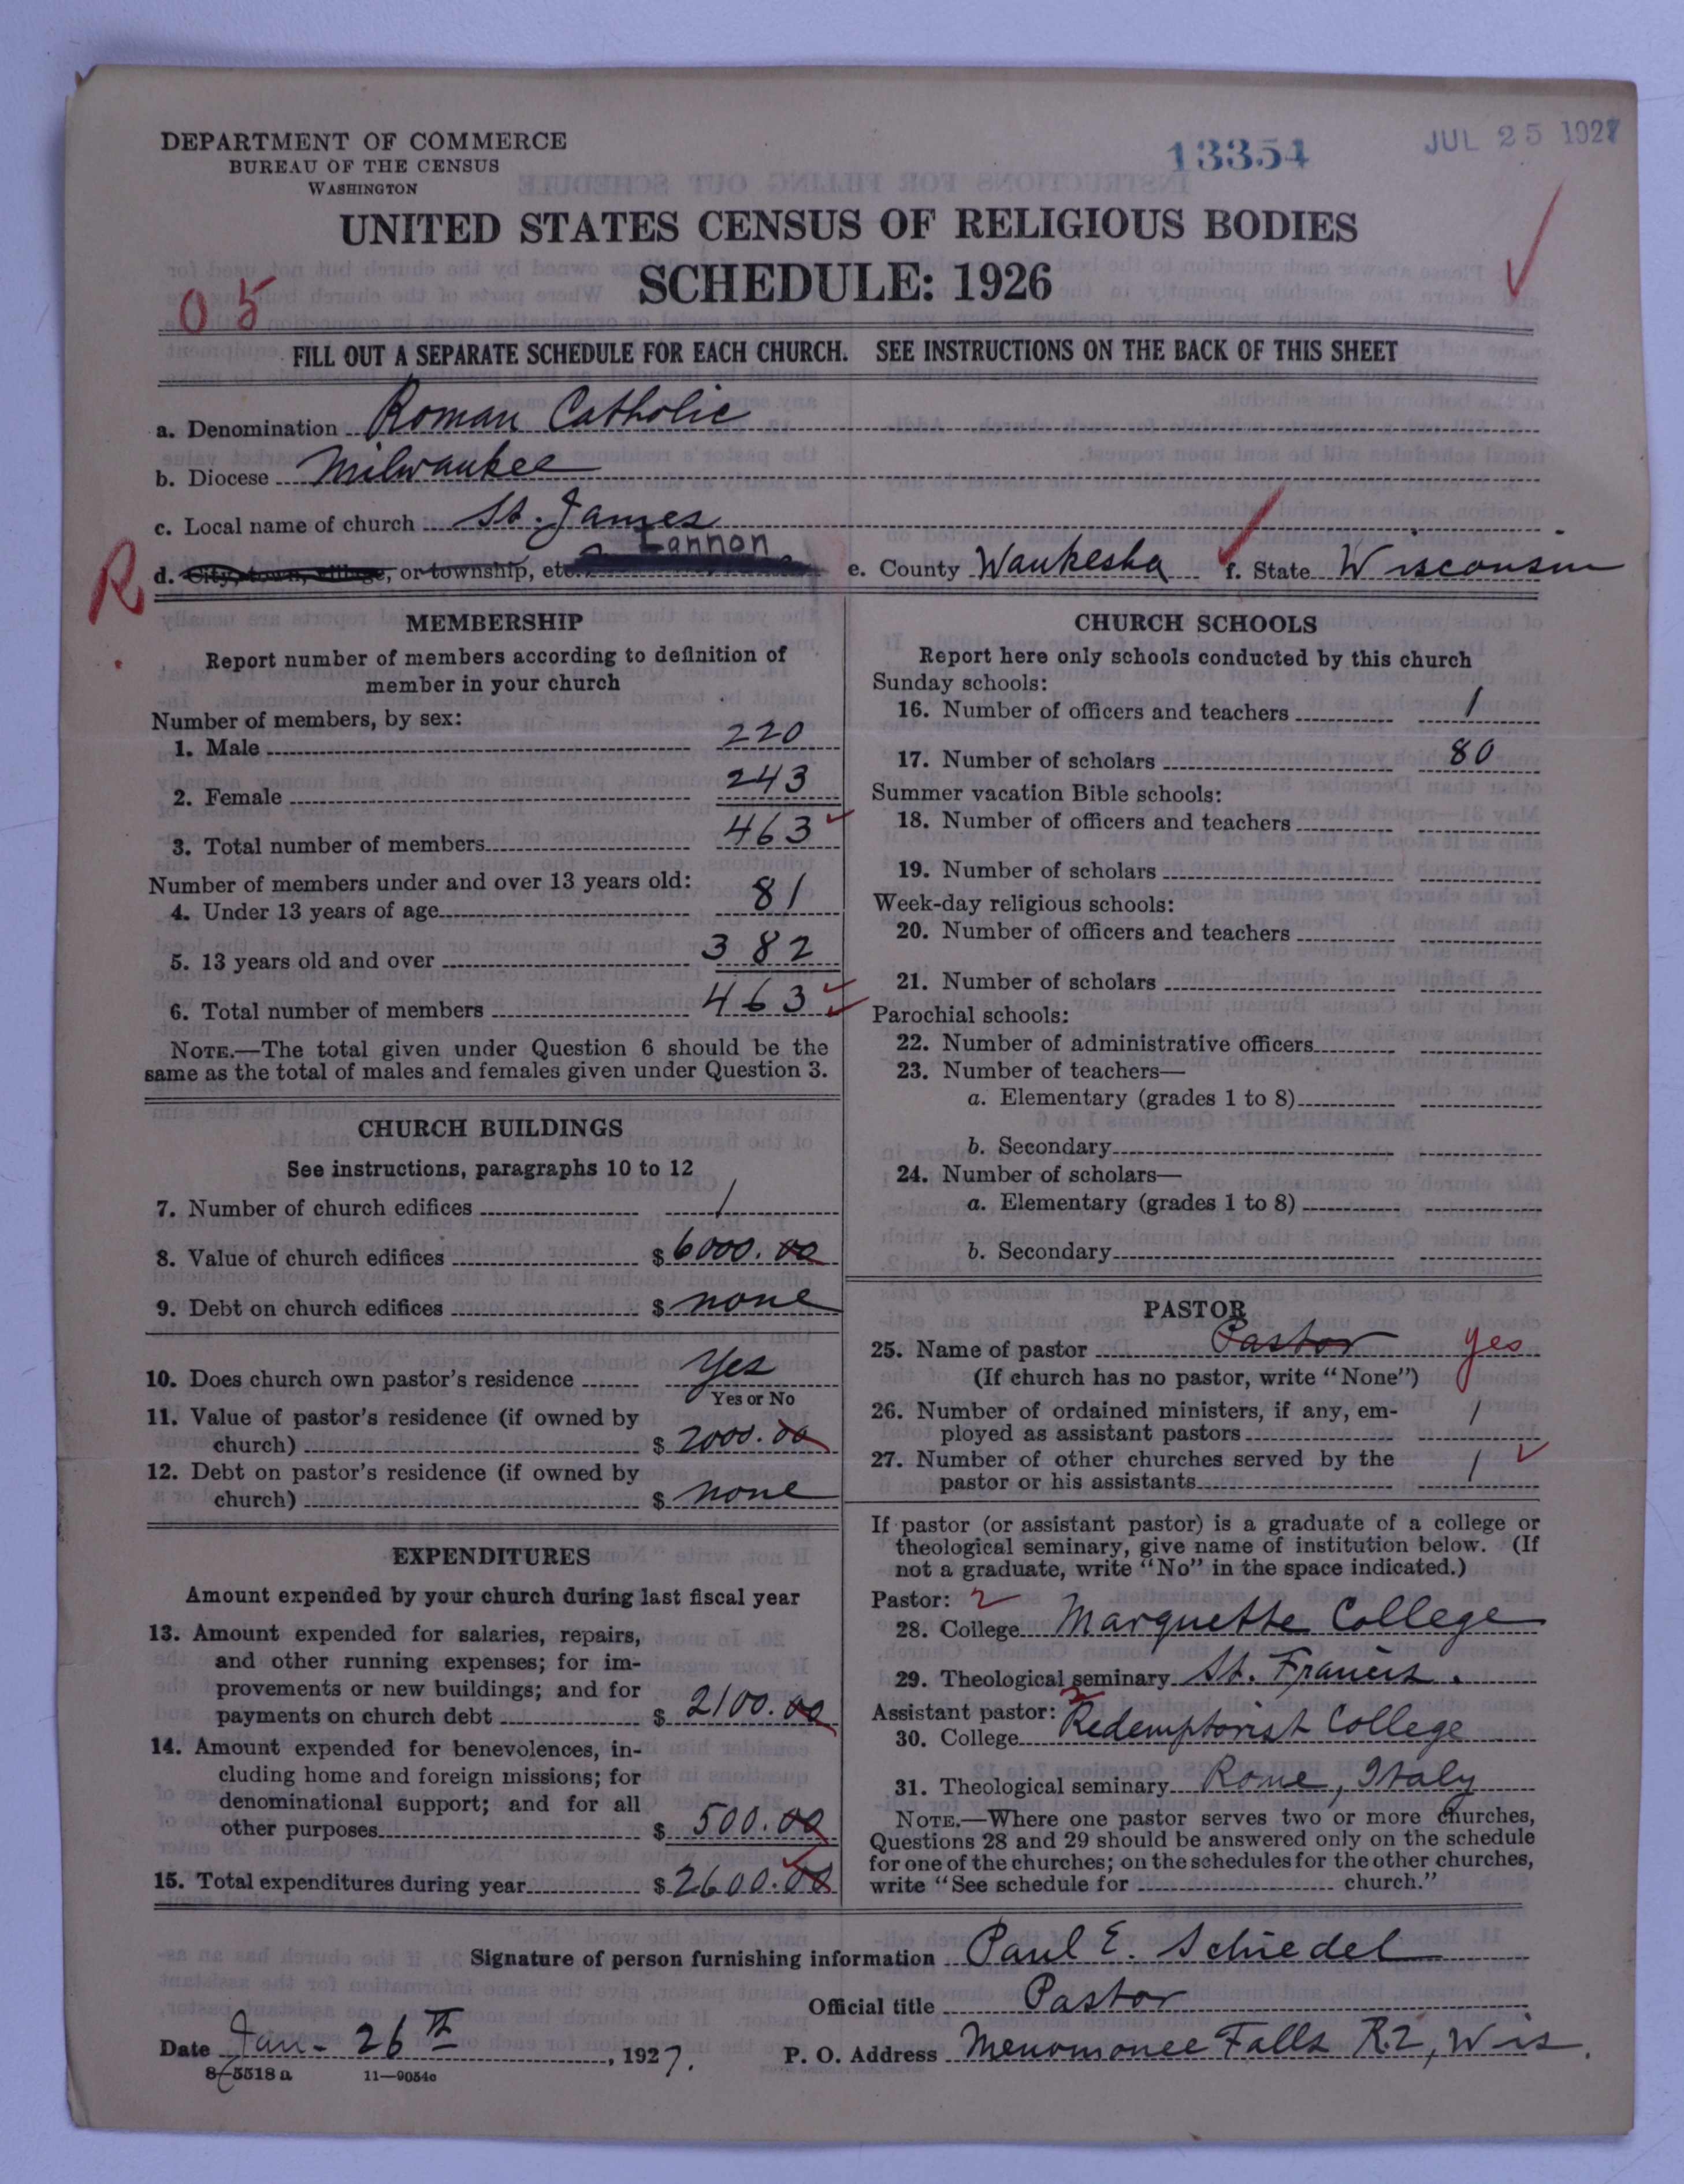 DEPARTMENT OF COMMERCE
BUREAU OF THE CENSUS
WASHINGTON
13354
JUL 25 1927
UNITED STATES CENSUS OF RELIGIOUS BODIES
SCHEDULE: 1926
05
FILL OUT A SEPARATE SCHEDULE FOR EACH CHURCH. SEE INSTRUCTIONS ON THE BACK OF THIS SHEET
a. Denomination Roman Catholic
b. Diocese Milwaukee
c. Local name of church St. James
R d. City, town, village, or township, etc. Lannon e. County Waukesha f. State Wisconsin
MEMBERSHIP
Report number of members according to definition of
member in your church
Number of members, by sex:
1. Male 220
2. Female 243
3. Total number of members 463
Number of members under and over 13 years old:
4. Under 13 years of age 81
5. 13 years old and over 382
6. Total number of members 463
NOTE.—The total given under Question 6 should be the
same as the total of males and females given under Question 3.
CHURCH BUILDINGS
See instructions, paragraphs 10 to 12
7. Number of church edifices 1
8. Value of church edifices $ 6000.00
9. Debt on church edifices $ none
10. Does church own pastor's residence Yes
Yes or No
11. Value of pastor's residence (if owned by
church) $ 2000.00
12. Debt on pastor's residence (if owned by
church) $ none
EXPENDITURES
Amount expended by your church during last fiscal year
13. Amount expended for salaries, repairs,
and other running expenses; for im-
provements or new buildings; and for
payments on church debt $ 2100.00
14. Amount expended for benevolences, in-
cluding home and foreign missions; for
denominational support; and for all
other purposes $ 500.00
15. Total expenditures during year $ 2600.00
CHURCH SCHOOLS
Report here only schools conducted by this church
Sunday schools:
16. Number of officers and teachers 1
17. Number of scholars 80
Summer vacation Bible schools:
18. Number of officers and teachers
19. Number of scholars
Week-day religious schools:
20. Number of officers and teachers
21. Number of scholars
Parochial schools:
22. Number of administrative officers
23. Number of teachers—
a. Elementary (grades 1 to 8)
b. Secondary
24. Number of scholars—
a. Elementary (grades 1 to 8)
b. Secondary
PASTOR
25. Name of pastor Pastor yes
(If church has no pastor, write "None")
26. Number of ordained ministers, if any, em-
ployed as assistant pastors 1
27. Number of other churches served by the
pastor or his assistants 1
If pastor (or assistant pastor) is a graduate of a college or
theological seminary, give name of institution below. (If
not a graduate, write "No" in the space indicated.)
Pastor: 2
28. College Marquette College
29. Theological seminary St. Francis.
Assistant pastor: 2
30. College Redemptorist College
31. Theological seminary Rome, Italy
NOTE.—Where one pastor serves two or more churches,
Questions 28 and 29 should be answered only on the schedule
for one of the churches; on the schedules for the other churches,
write "See schedule for church."
Signature of person furnishing information Paul E. Schiedel
Official title Pastor
Date Jan - 26th, 1927. P. O. Address Menomonee Falls R.2, Wis.
8-5518 a 11—9054c